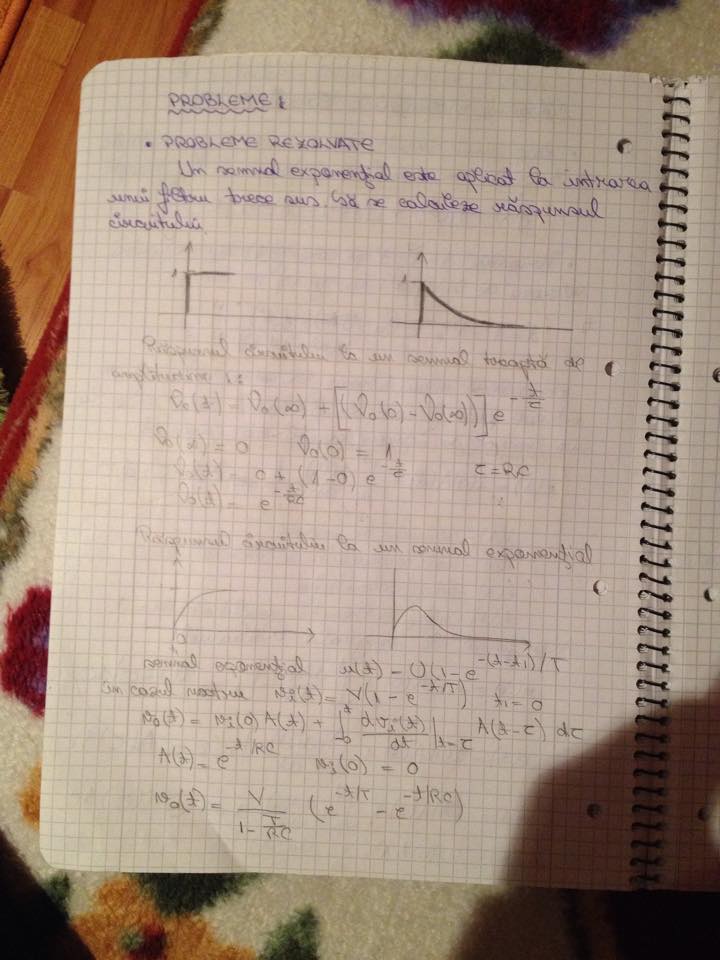 PROBLEME :
• PROBLEME REZOLVATE
Un semnal exponențial este aplicat la intrarea
unui filtru trece sus. Să se calculeze răspunsul
circuitului.
1
1
Răspunsul circuitului la un semnal treaptă de
amplitudine 1:
v₀(t) = v₀(∞) + [(v₀(0) - v₀(∞))] e^{-t/τ}
v₀(∞) = 0 v₀(0) = 1
v₀(t) = 0 + (1-0) e^{-t/τ} τ = RC
v₀(t) = e^{-t/RC}
Răspunsul circuitului la un semnal exponențial
0
semnal exponențial u(t) = U(1 - e^{-(t-t₁)/T}
în cazul nostru v_i(t) = V(1 - e^{-t/T}) t₁ = 0
v₀(t) = v_i(0) A(t) + ∫_0^t dv_i(t)/dt |_{t=τ} A(t-τ) dτ
A(t) = e^{-t/RC} v_i(0) = 0
v₀(t) = V/(1 - T/RC) (e^{-t/T} - e^{-t/RC})